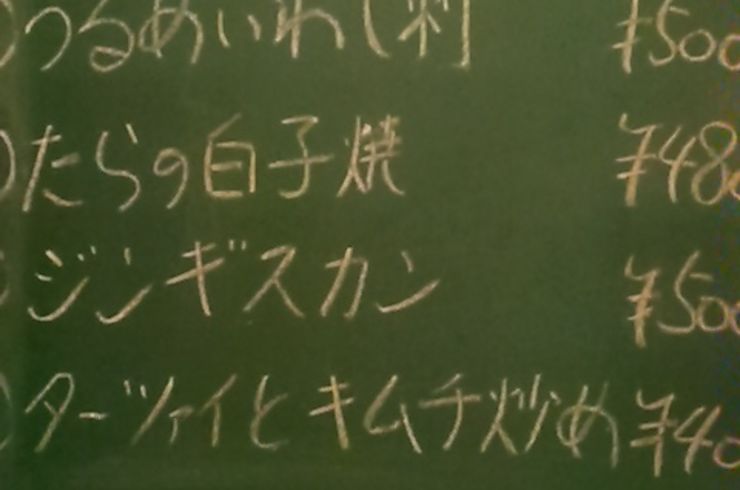 つるあいわし刺 ¥500
たらの白子焼 ¥480
ジンギスカン ¥500
ターツァイとキムチ炒め ¥40